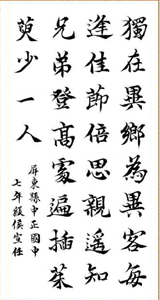 獨在異鄉為異客每
逢佳節倍思親遙知
兄弟登高處遍插茱
萸少一人
屏東縣中正國中
七年級侯宣任